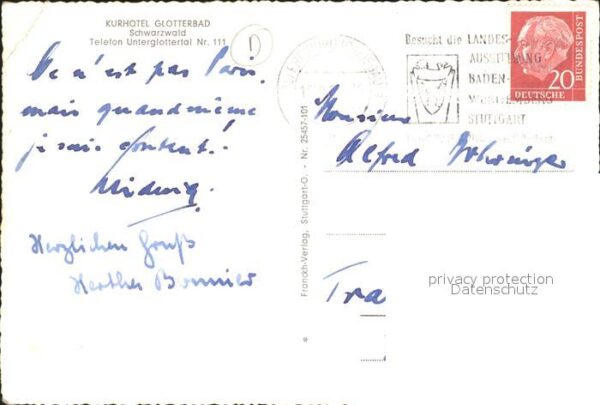 KURHOTEL GLOTTERBAD
Schwarzwald
Telefon Unterglottertal Nr. 111
Ce n'est pas Paris,
mais quand même
je suis content!
Herzlichen Gruß
Herthe
Franckh-Verlag, Stuttgart-O. - Nr. 25457-101
Besucht die LANDES-
AUSSTELLUNG
BADEN-
WÜRTTEMBERG
STUTTGART
DEUTSCHE
BUNDESPOST
20
Monsieur
Alfred
Tra
privacy protection
Datenschutz